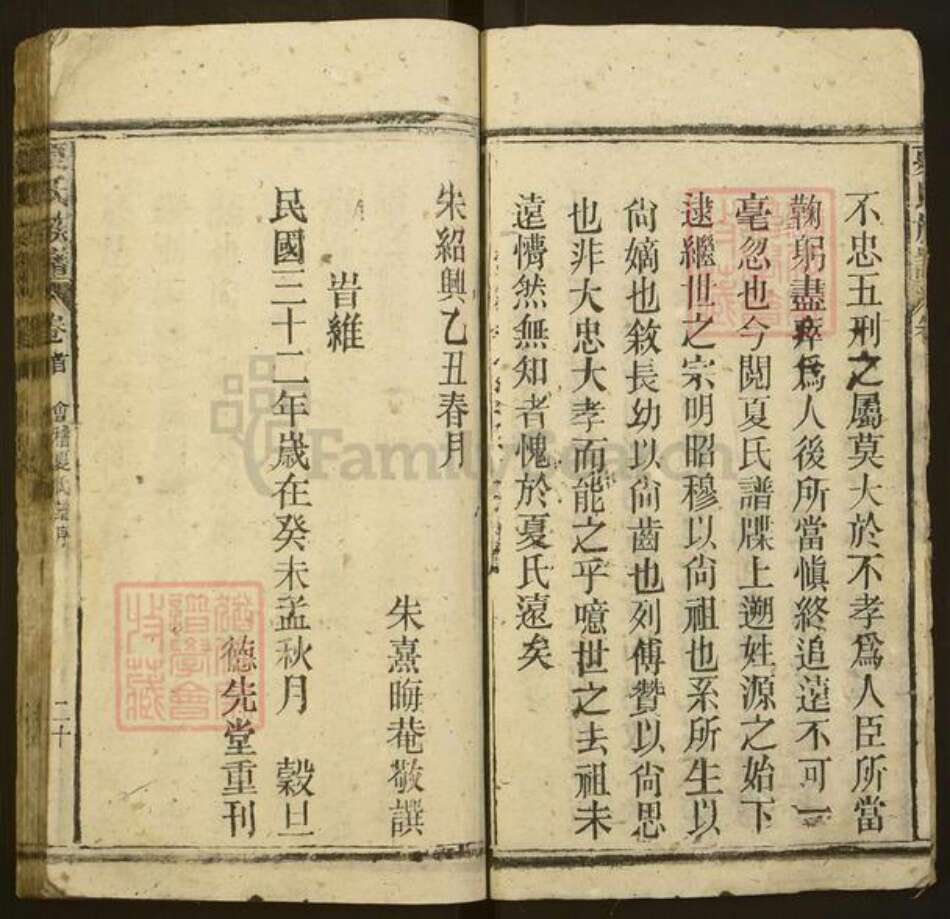 不忠五刑之屬莫大於不孝爲人臣所當
鞠躬盡瘁爲人後所當愼終追遠不可一
毫忽也今閱夏氏譜牒上遡姓源之始下
逮繼世之宗明昭穆以尙祖也系所生以
尙嫡也敘長幼以尙齒也列傅贊以尙思
也非大忠大孝而能之乎噫世之去祖未
遠懵然無知者愧於夏氏遠矣
宋紹興乙丑春月
朱熹晦菴敬譔
旹維
民國三十二年歲在癸未孟秋月 穀旦
德先堂重刊
夏氏族譜 卷首 會稽夏氏譜序 二十
FamilySearch